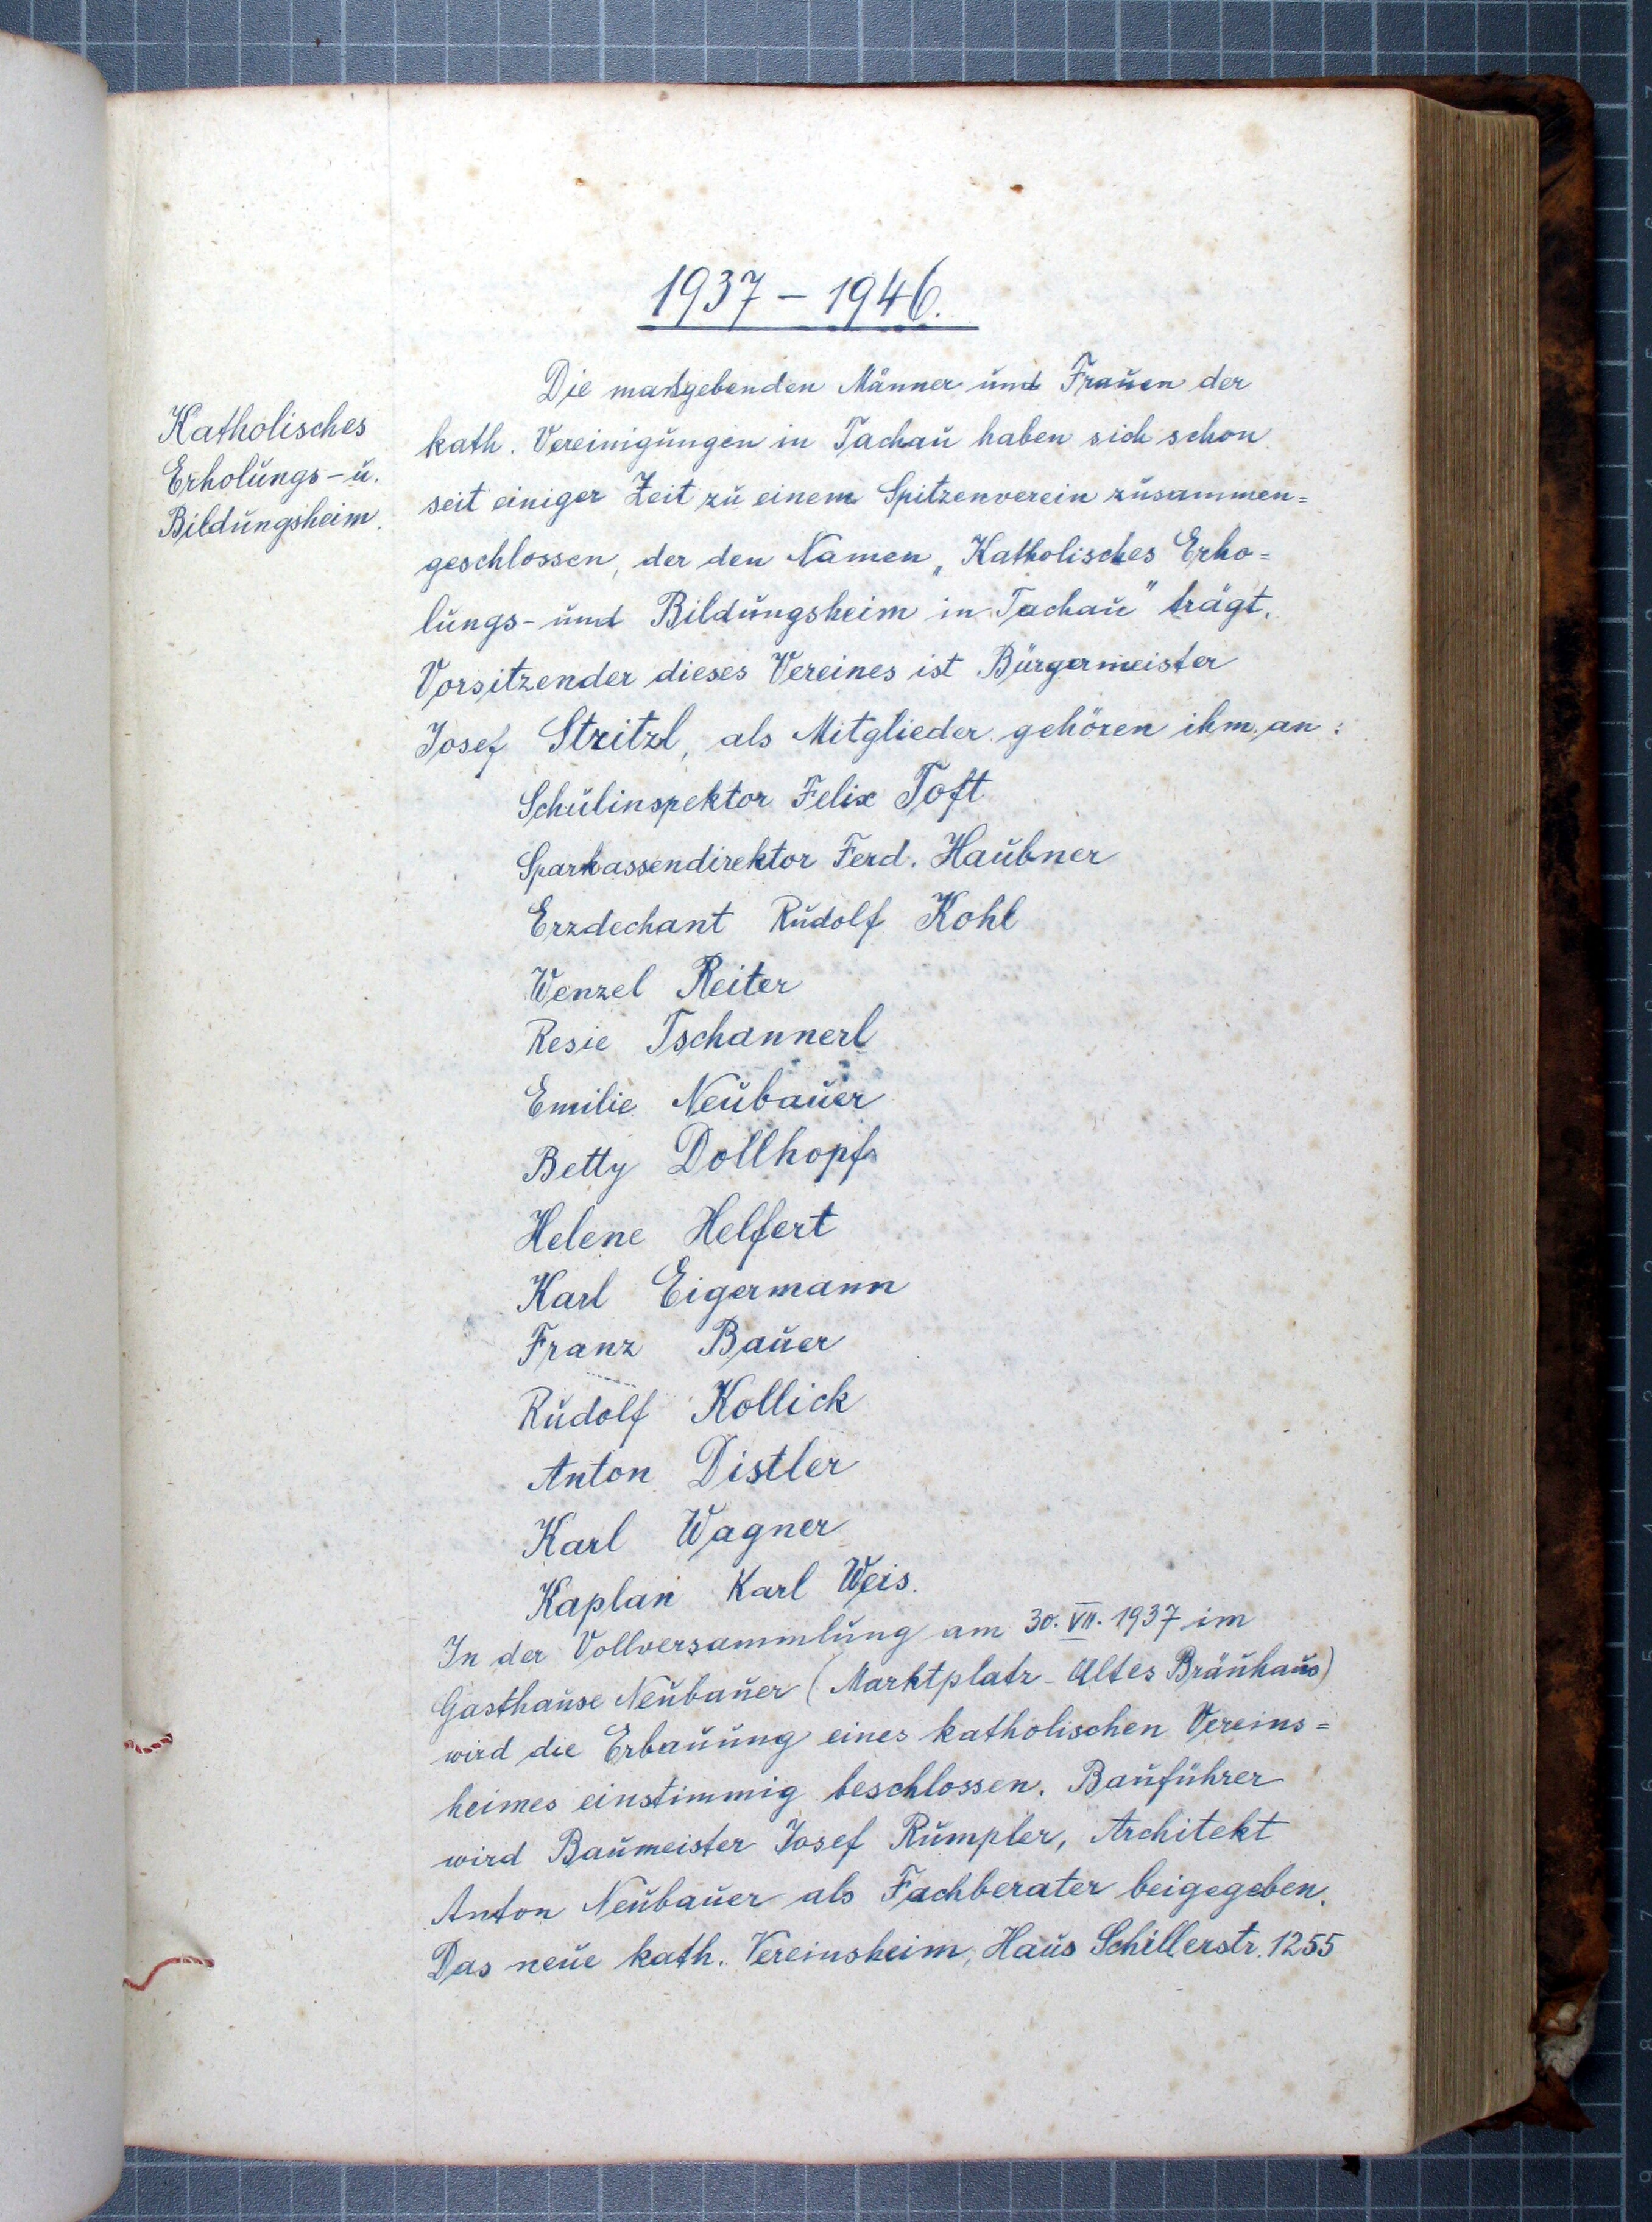 1937 – 1946.
Katholisches
Erholungs- u.
Bildungsheim.
Die maßgebenden Männer und Frauen der
kath. Vereinigungen in Tachau haben sich schon
seit einiger Zeit zu einem Spitzenverein zusammen=
geschlossen, der den Namen „Katholisches Erho=
lungs- und Bildungsheim in Tachau" trägt.
Vorsitzender dieses Vereines ist Bürgermeister
Josef Stritzl, als Mitglieder gehören ihm an:
Schulinspektor Felix Toft
Sparkassendirektor Ferd. Haubner
Erzdechant Rudolf Kohl
Wenzel Reiter
Resie Tschannerl
Emilie Neubauer
Betty Dollhopf
Helene Helfert
Karl Eigermann
Franz Bauer
Rudolf Kollick
Anton Distler
Karl Wagner
Kaplan Karl Weis.
In der Vollversammlung am 30. VII. 1937 im
Gasthause Neubauer (Marktplatz - Altes Bräuhaus)
wird die Erbauung eines katholischen Vereins=
heimes einstimmig beschlossen. Bauführer
wird Baumeister Josef Rumpler, Architekt
Anton Neubauer als Fachberater beigegeben.
Das neue kath. Vereinsheim, Haus Schillerstr. 1255